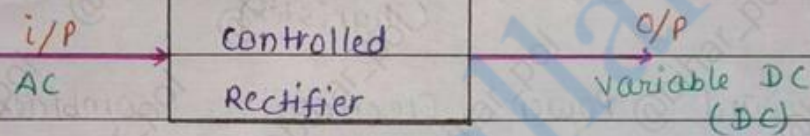 i/P
AC
controlled
Rectifier
O/P
Variable DC
(DC)